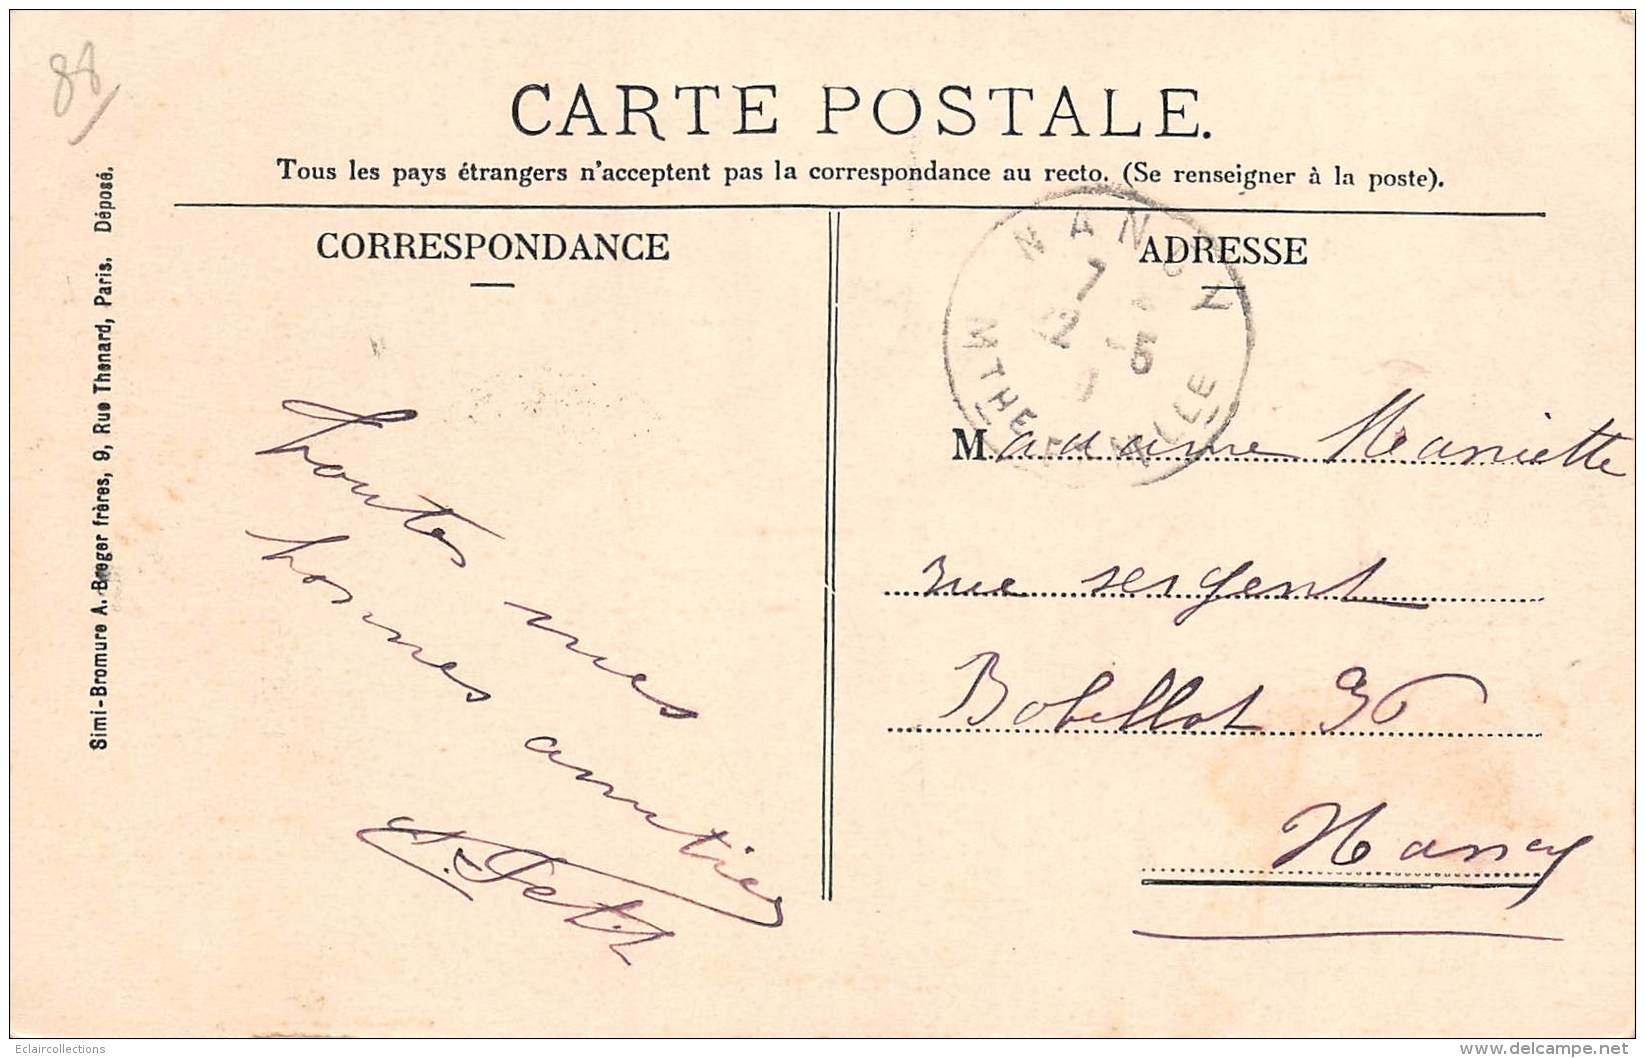 88
CARTE POSTALE.
Tous les pays étrangers n'acceptent pas la correspondance au recto. (Se renseigner à la poste).
Simi-Bromure A. Breger frères, 9, Rue Thenard, Paris. Déposé.
CORRESPONDANCE
toutes mes
bonnes amitiés
ADRESSE
NANCY
7
22 - 5
MTHE ET MLLE
Madame Mariette
rue sergent
Bobillot 36
Nancy
Eclaircollections
www.delcampe.net